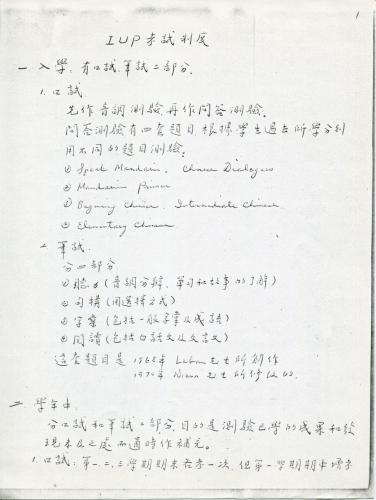 1
IUP考試制度
一 入學：有口試，筆試二部分．
1. 口試
先作音調測驗，再作問答測驗．
問答測驗有四套題目，根據學生過去所學分别
用不同的題目測驗：
① Speak Mandarin, Chinese Dialogues
② Mandarin Primer
③ Beginning Chinese, Intermediate Chinese
④ Elementary Chinese
2. 筆試
分四部分
①聽力（音調分辨，單句和故事的了解）
②句構（用選擇方式）
③字彙（包括一般字彙及成語）
④閱讀（包括白話文及文言文）
這套題目是1968年 先生所創作
1970年 先生所修改的．
二 學年中
分口試和筆試二部分，目的是測驗已學的成果和發
現未及之處而適時作補充。
1. 口試：第一、二、三學期期末各考一次，但第一學期期中增考